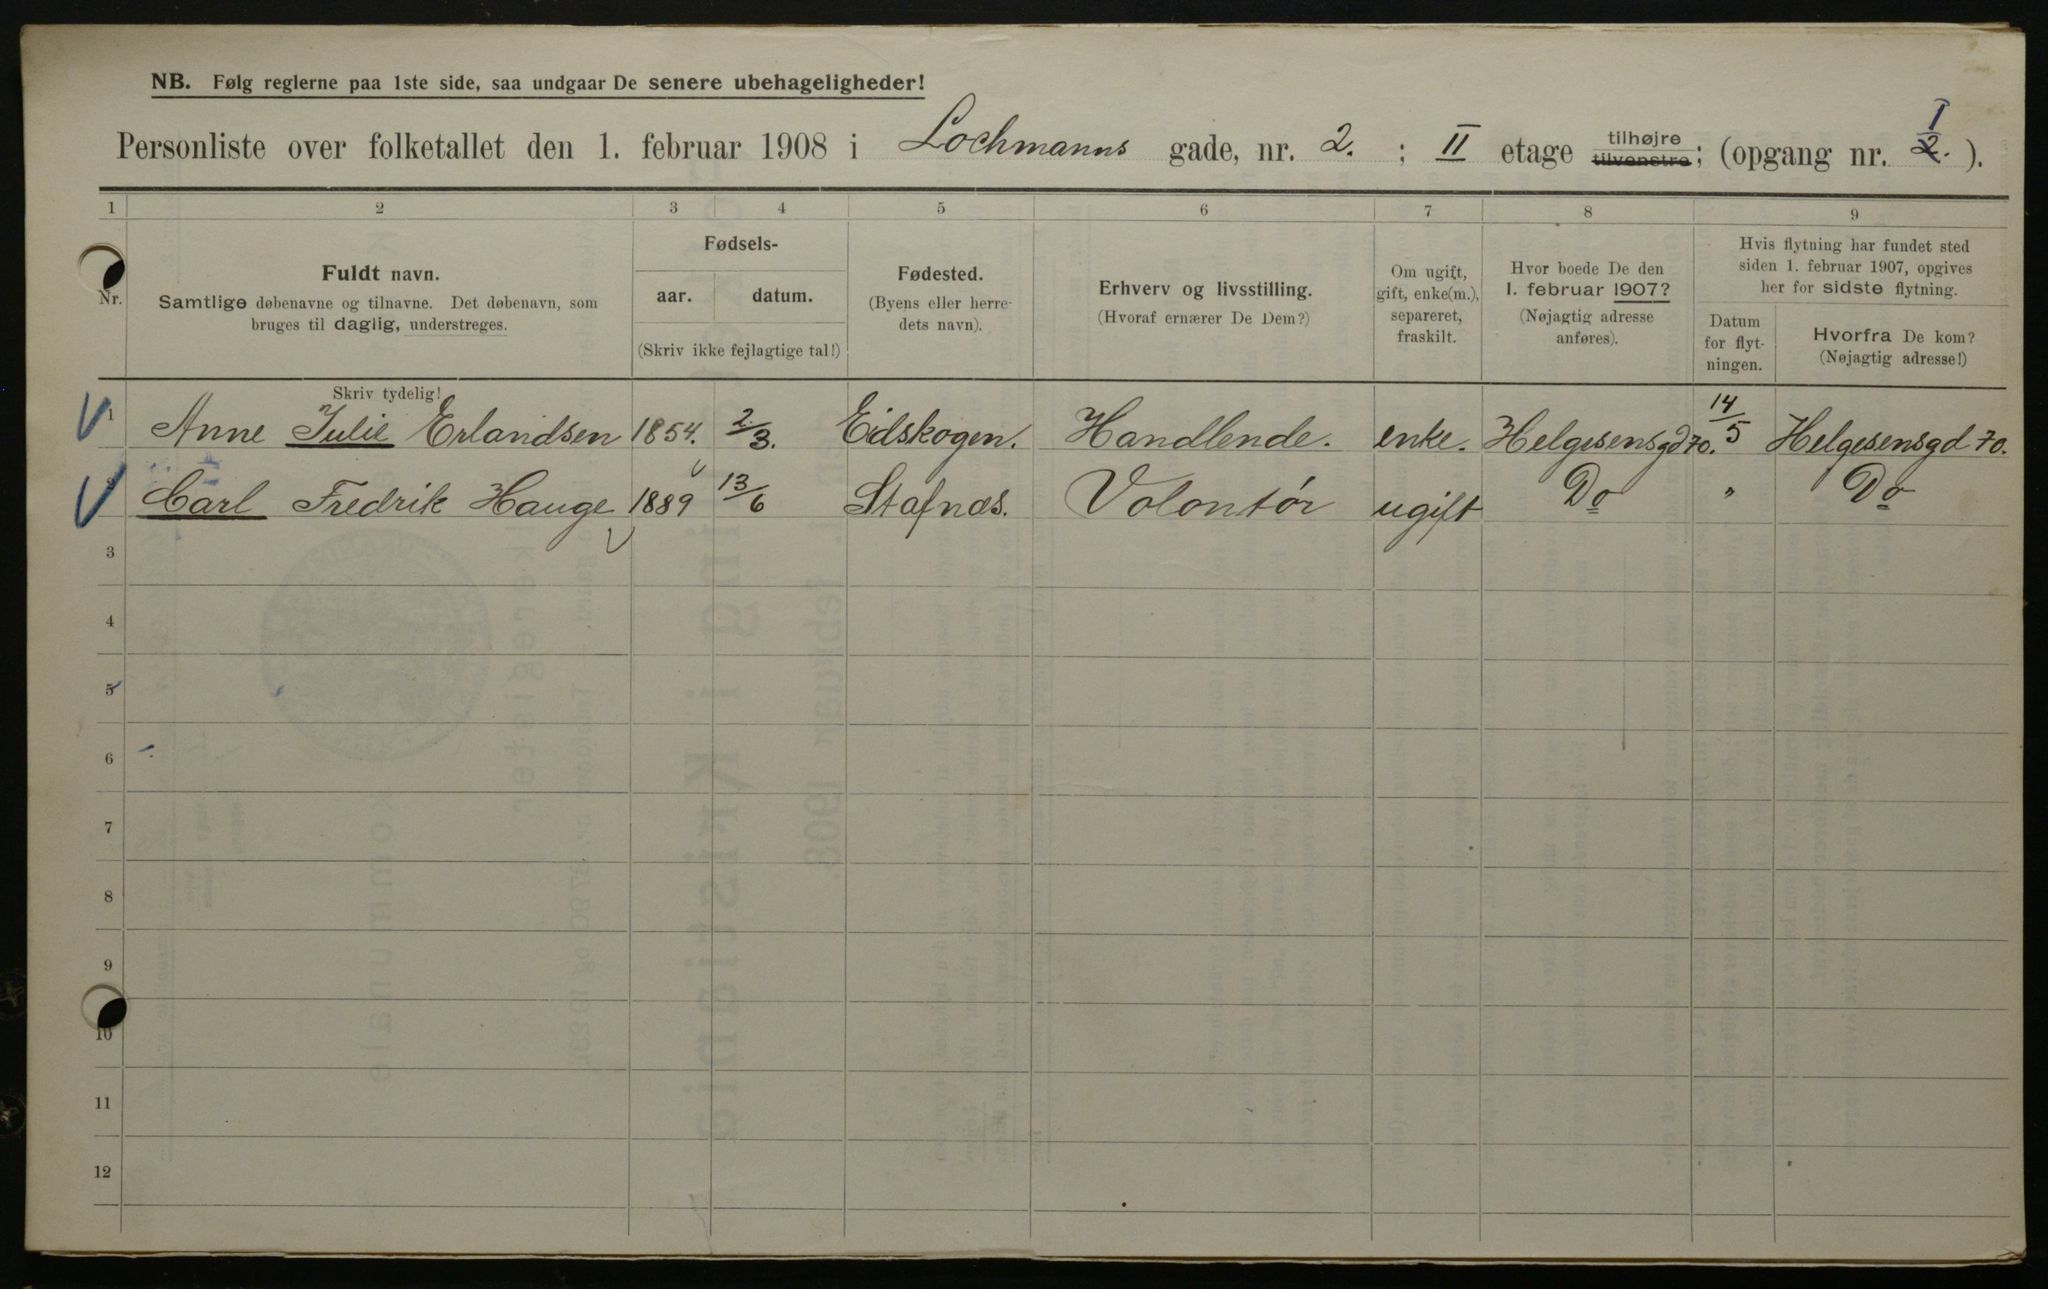 NB. Følg reglerne paa 1ste side, saa undgaar De senere ubehageligheder!
Personliste over folketallet den 1. februar 1908 i Lochmanns gade, nr. 2. ; II etage tilhøjre tilvenstre; (opgang nr. 2. I ).
1 2 3 4 5 6 7 8 9
Nr.
Fuldt navn.
Samtlige døbenavne og tilnavne. Det døbenavn, som
bruges til daglig, understreges.
Skriv tydelig!
Fødsels-
aar. datum.
(Skriv ikke fejlagtige tal!)
Fødested.
(Byens eller herre-
dets navn).
Erhverv og livsstilling.
(Hvoraf ernærer De Dem?)
Om ugift,
gift, enke(m.),
separeret,
fraskilt.
Hvor boede De den
1. februar 1907?
(Nøjagtig adresse
anføres).
Hvis flytning har fundet sted
siden 1. februar 1907, opgives
her for sidste flytning.
Datum
for flyt-
ningen.
Hvorfra De kom?
(Nøjagtig adresse!)
1 Anne Julie Erlandsen 1854. 2/3. Eidskogen. Handlende. enke. Helgesensgd 70. 14/5 Helgesensgd 70.
2 Carl Fredrik Hauge 1889 13/6 Stafnæs. Volontør ugift Do " Do
3
4
5
6
7
8
9
10
11
12